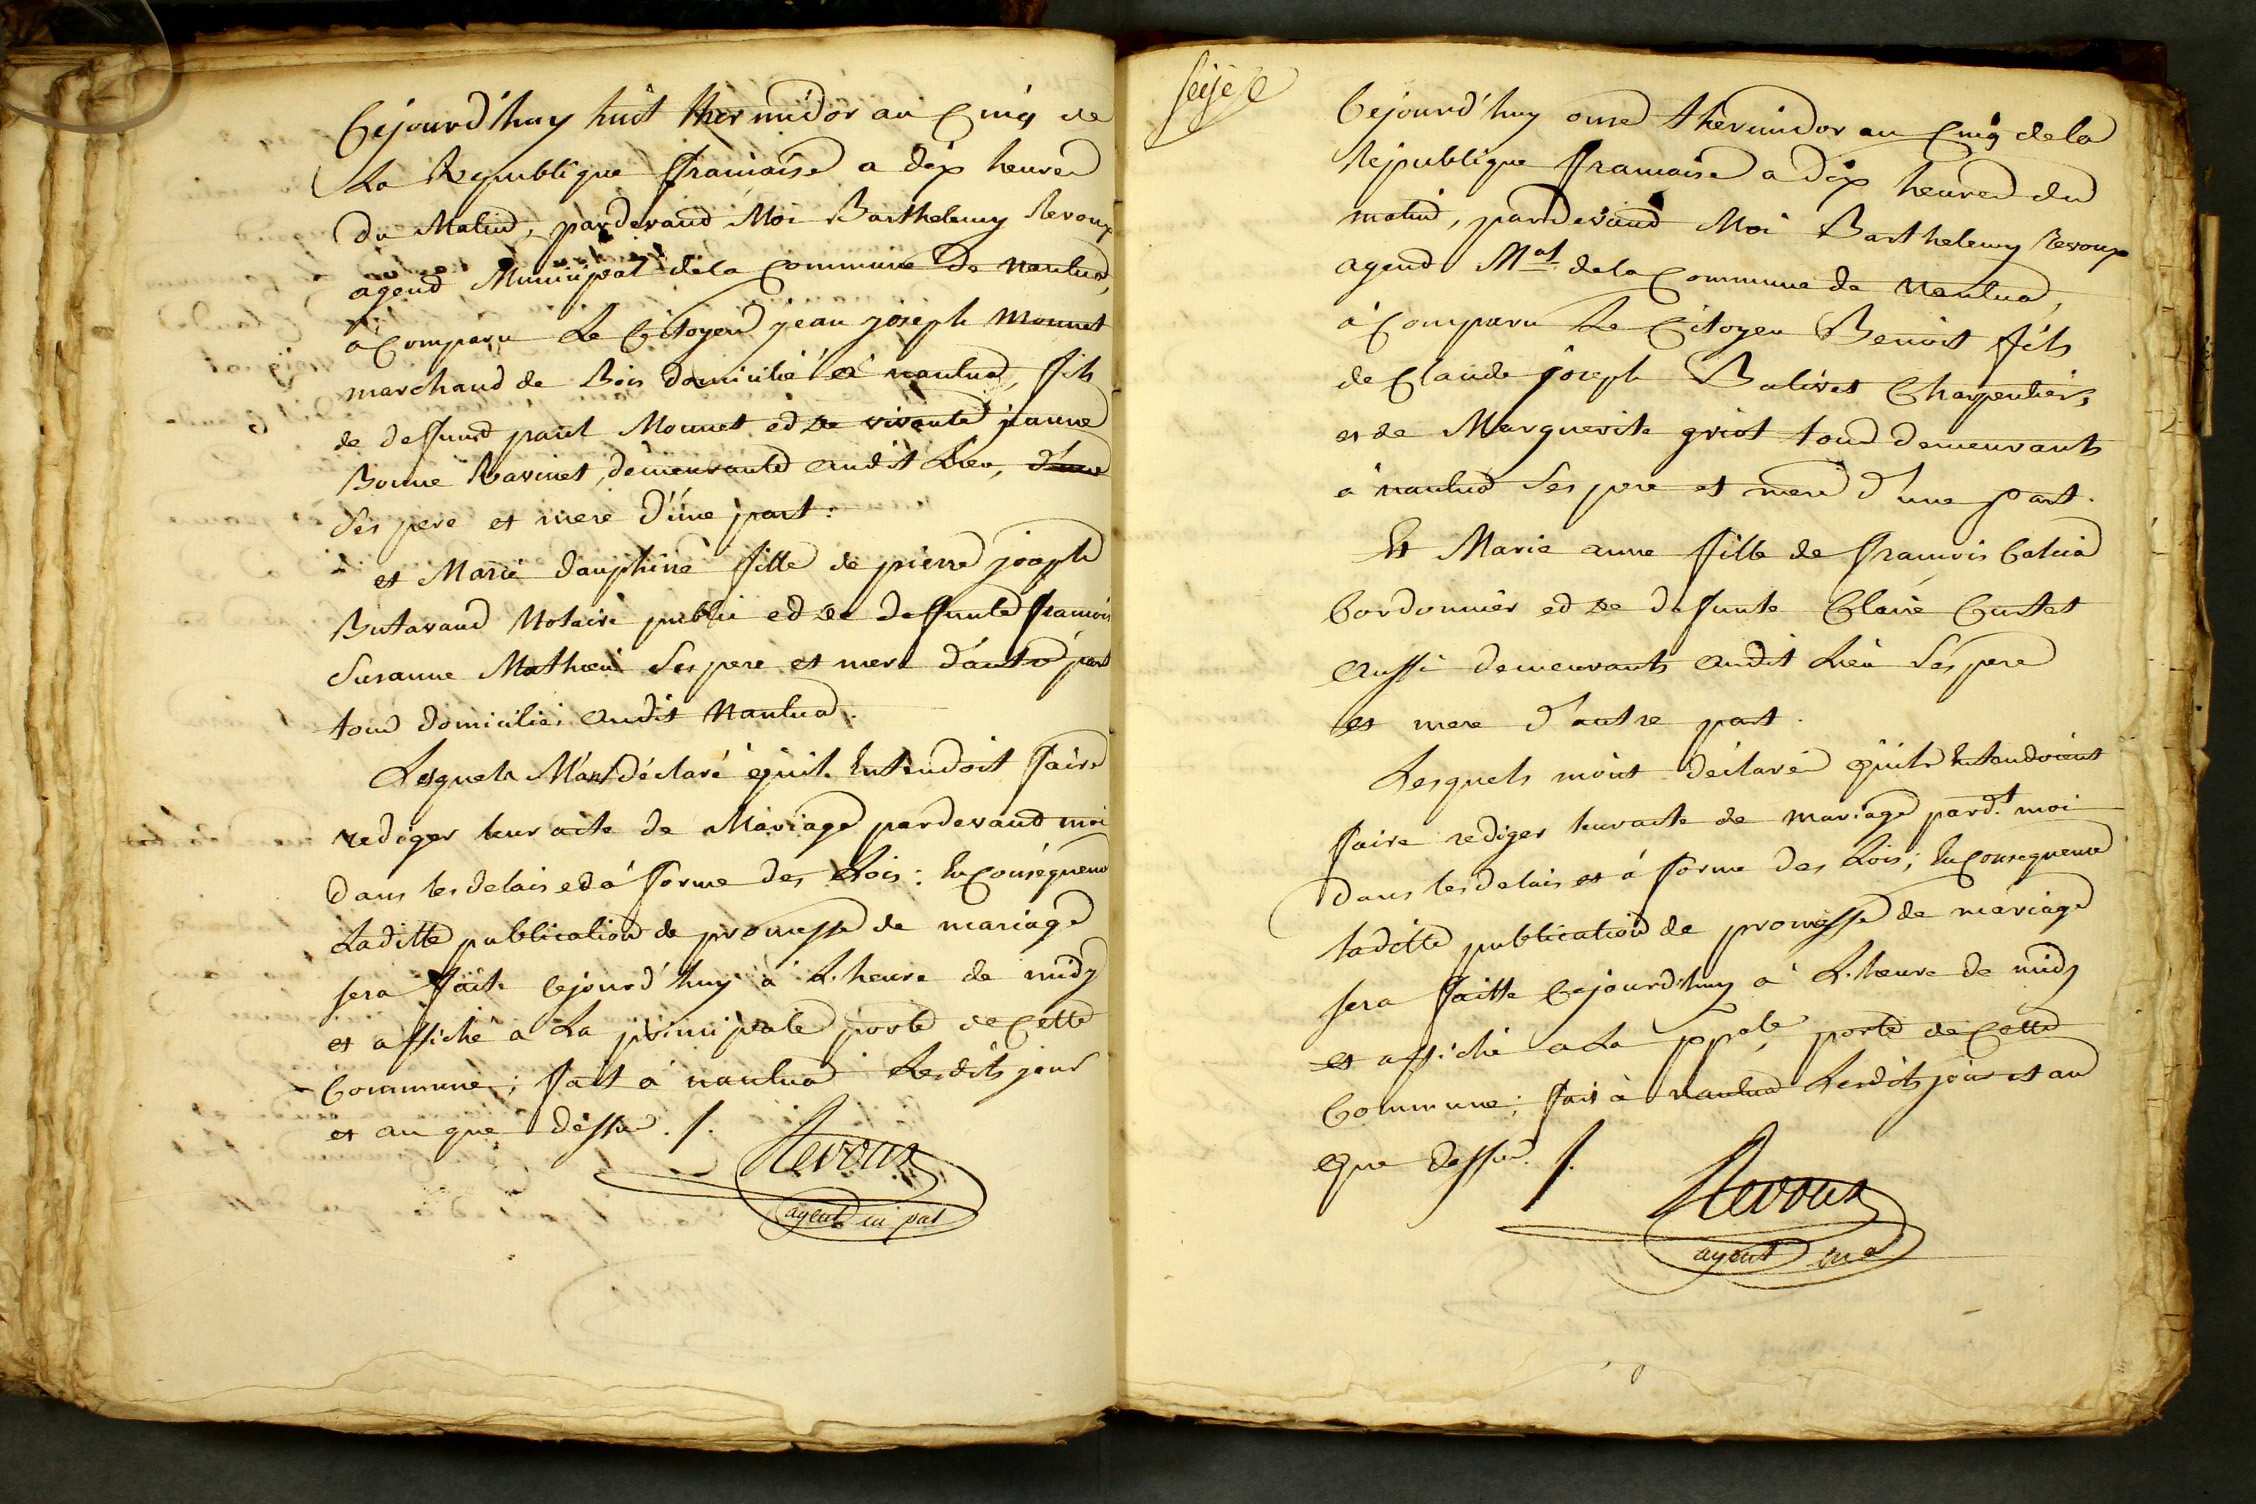 Cejourd'huy huit thermidor an Cinq de
La Republique francaise a dix heures
du Matin, pardevant Moi Barthelemy Revoux
agend Municipal de la Commune de nantua,
à Comparu Le Citoyen jean joseph Monnet
marchand de Bois domicilié à nantua, fils
de deffunt paul Monnet et de vivante jeanne
Bonne Ravinet, demeurante audit Lieu, d'une
Ses pere et mere d'une part:
et Marie dauphine fille de pierre joseph
Butavand Notaire public et de deffunte francoise
Susanne Mathieu Ses pere et mere d'autre part
tous domiciliés audit Nantua.
Lesquels M'ont déclaré qu'ils Entendoit faire
rediger leur acte de Mariage pardevant moi
dans les delais et à forme des Lois: En Conséquence
Laditte publication de promesse de mariage
sera faite Cejourd'huy à L'heure de midy
et affiché a La principale porte de Cette
Commune; fait à nantua Lesdits jour
et an que dessus ./.
Revoux
agent m pal
seize
Cejourd'huy onse thermidor an Cinq de la
Republique francaise a dix heures du
matin, pardevant Moi Barthelemy Revoux
agend Mal de la Commune de Nantua,
à Comparu Le Citoyen Benoit fils
de Claude joseph Balivet Charpentier,
et de Marguerite griot tous demeurants
à nantua Ses pere et mere d'une part.
Et Marie anne fille de francois
Cordonnier et de defunte Claire Curtet
aussi demeurants audit Lieu Ses pere
et mere d'autre part.
Lesquels m'ont déclaré qu'ils Entendoient
faire rediger leur acte de mariage pardt. moi
dans les delais et à forme des Lois; En Consequence
laditte publication de promesse de mariage
sera faitte Cejourd'huy à L'heure de midy
et affiché a La ppale porte de Cette
Commune; fait à nantua Lesdits jour et an
que dessus ./.
Revoux
agent ma